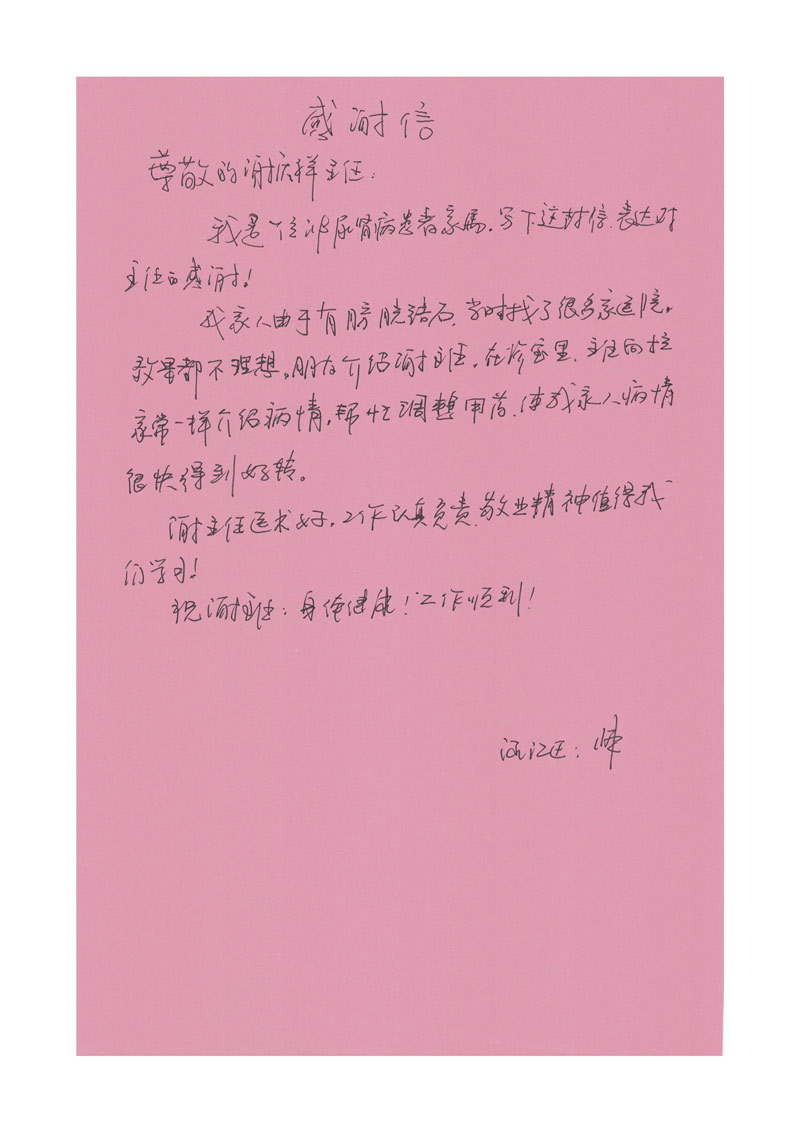 感谢信
尊敬的谢庆祥主任:
我是一位泌尿肾病患者家属,写下这封信,表达对
主任的感谢!
我家人由于有膀胱结石,当时找了很多家医院,
效果都不理想。朋友介绍谢主任,在诊室里,主任向拉
家常一样介绍病情,帮忙调整用药,使我家人病情
很快得到好转。
谢主任医术好,工作认真负责,敬业精神值得我
们学习!
祝谢主任:身体健康!工作顺利!
涵江区: